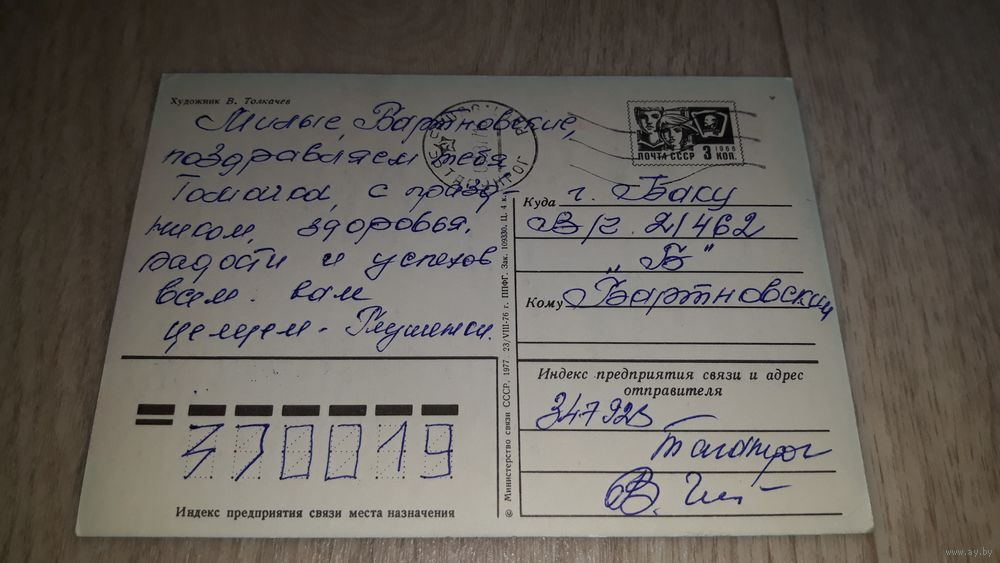 Художник В. Толкачев
Милые Вартновские,
поздравляем тебя,
Томочка, с празд-
ником, здоровья,
радости и успехов
всем вам
целуем - Глушенки.
ПОЧТА СССР 3 КОП.
1966
Куда г. Баку
В/г. 21462
"Б"
Кому Вартновским
Индекс предприятия связи и адрес
отправителя
347923
Таганрог
370019
Индекс предприятия связи места назначения
© Министерство связи СССР, 1977. 23/VIII-76 г. ППФГ. Зак. 109330. Ц. 4 к.
www.ay.by